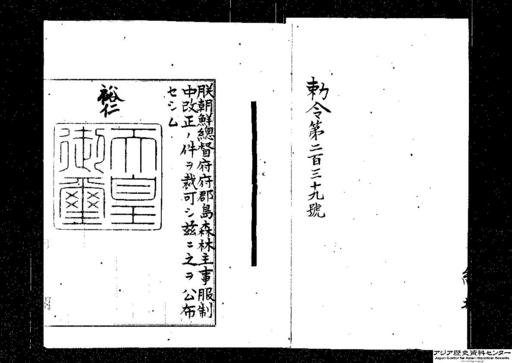 勅令第二百三十九號
朕朝鮮總督府府郡島森林主事服制
中改正ノ件ヲ裁可シ茲ニ之ヲ公布
セシム
裕仁
天皇
御璽
アジア歴史資料センター
Japan Center for Asian Historical Records